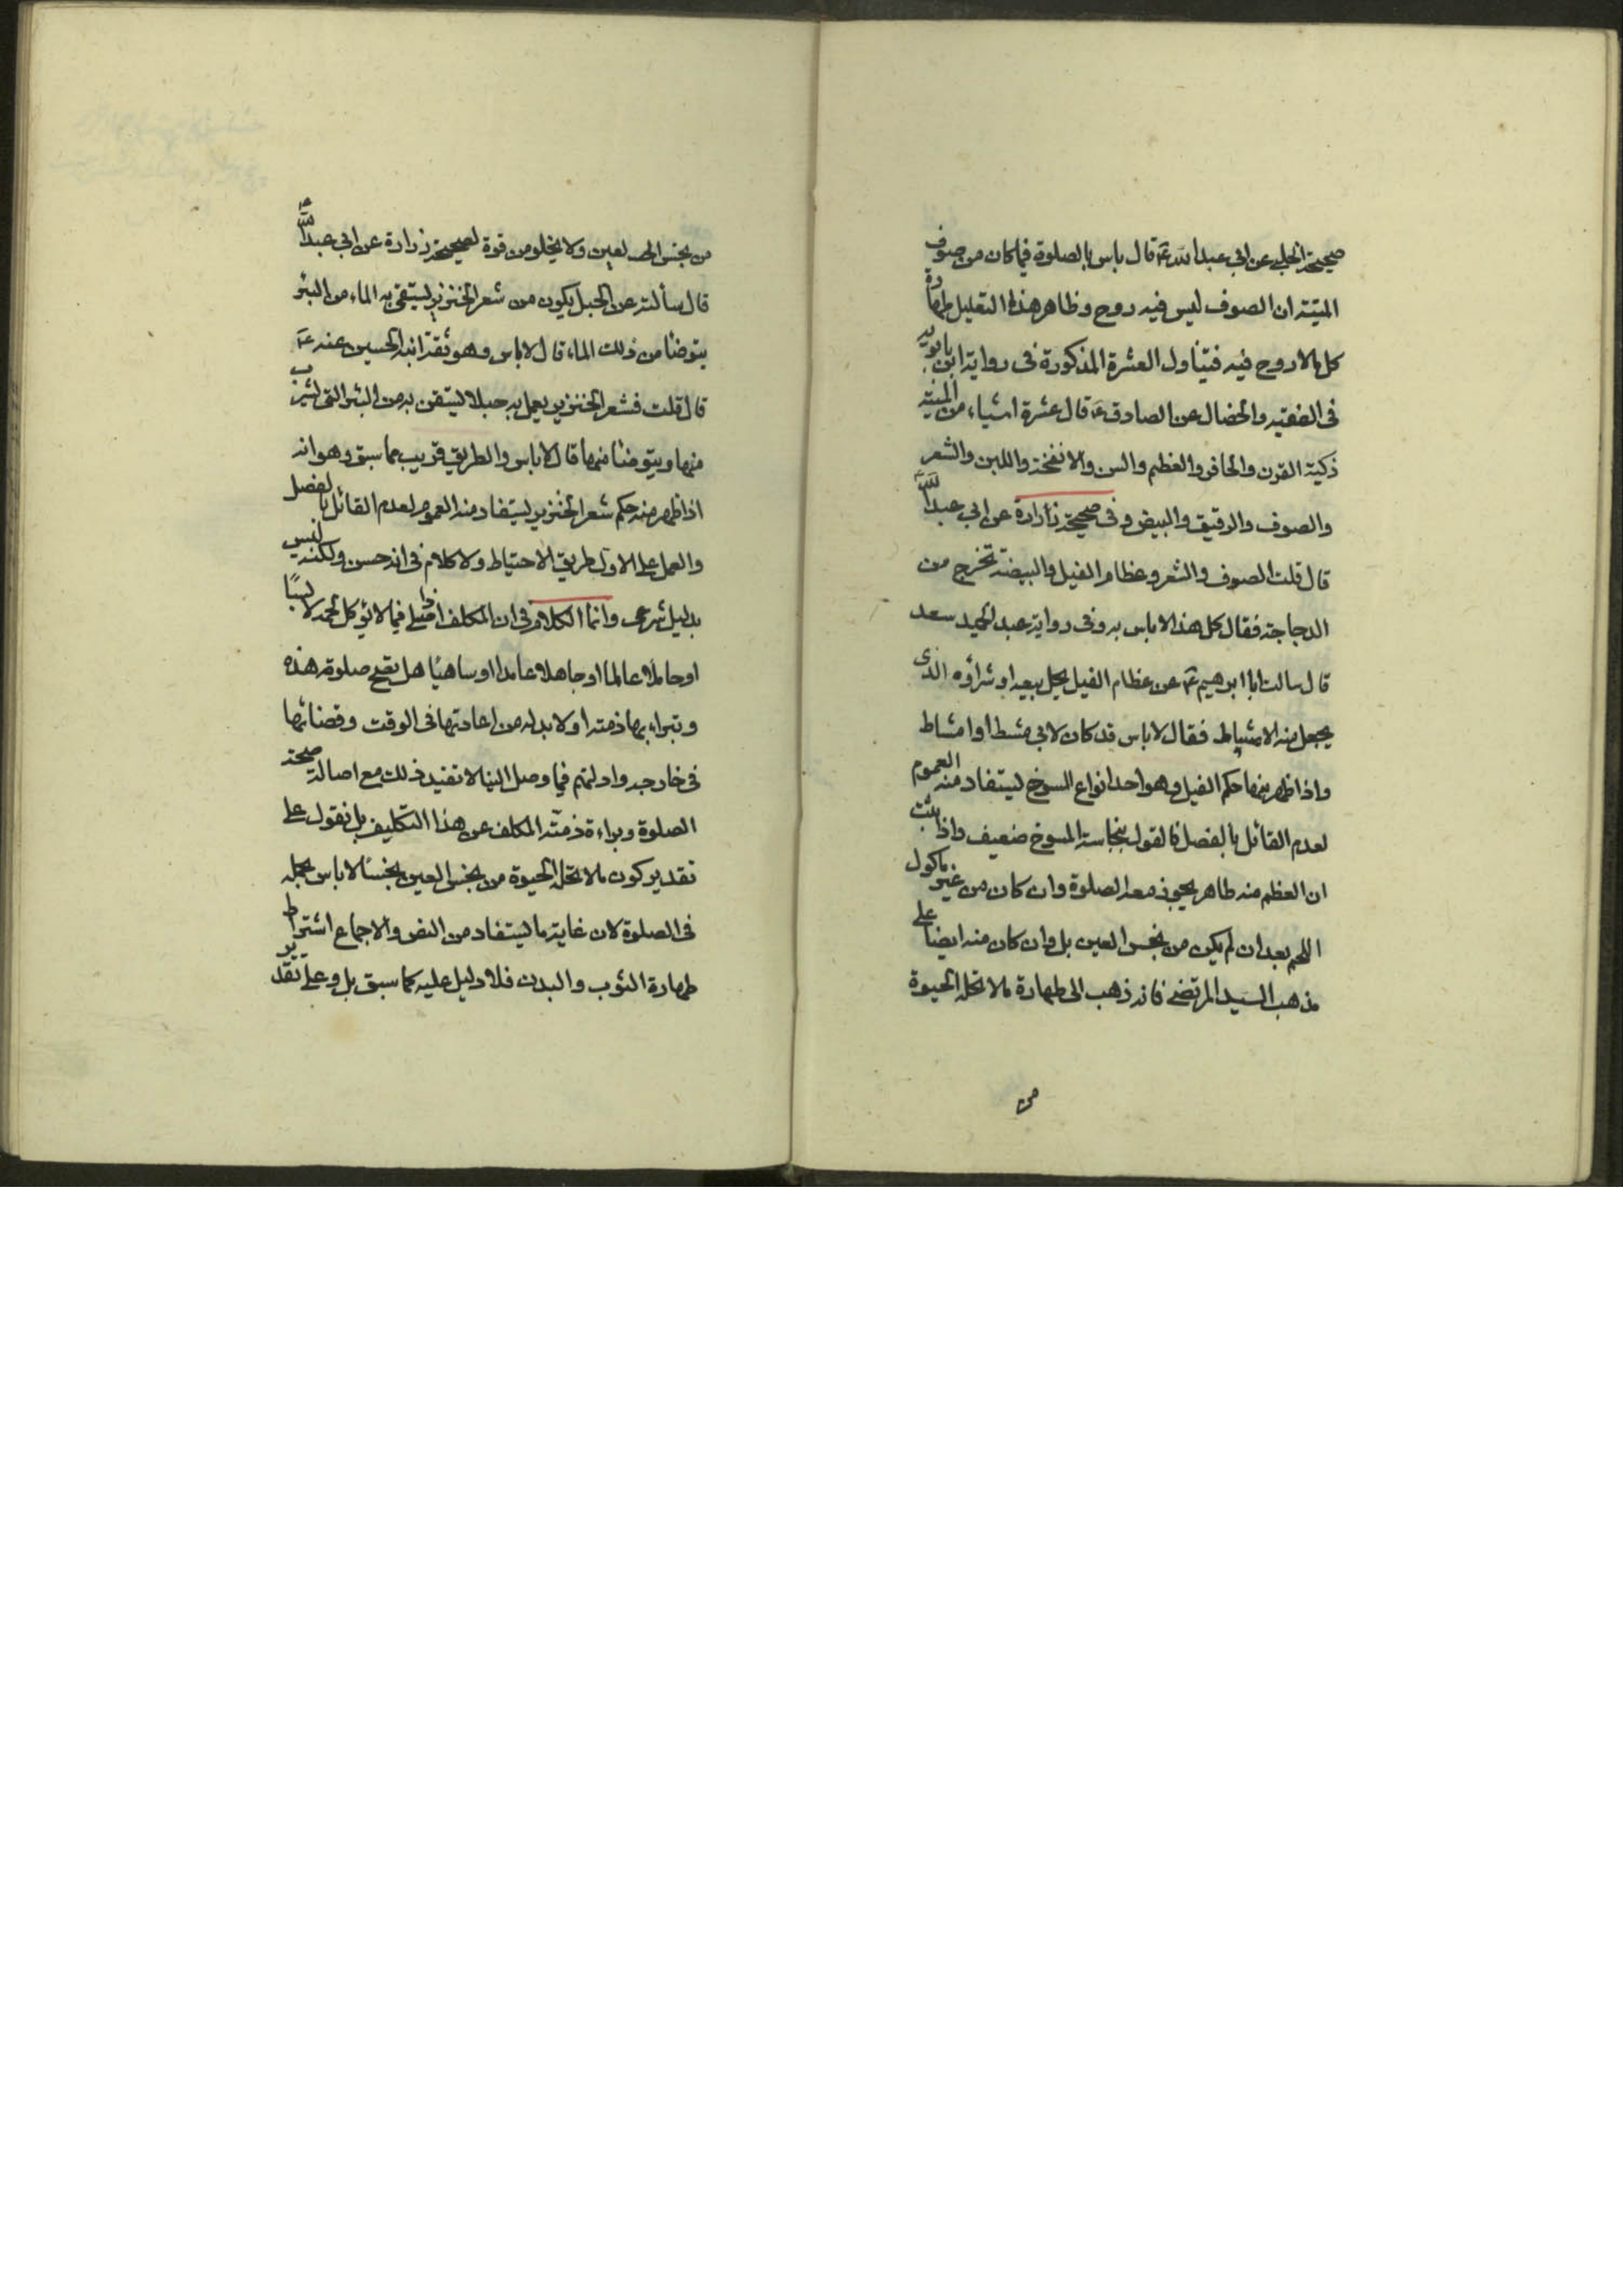 صحيحة الحلبي عن ابي عبد الله ع قال باس بالصلوة فيما كان من صوف
الميتة ان الصوف ليس فيه روح وظاهر هذا التعليل طهارة
كل ما لا روح فيه فيتناول العشرة المذكورة في رواية ابن بابويه
في الفقيه والخصال عن الصادق ع قال عشرة اشياء من الميتة
ذكية القرن والحافر والعظم والسن والانفخة واللبن والشعر
والصوف والرقيق والبيض وفي صحيحة زرارة عن ابي عبد الله
قال قلت الصوف والشعر وعظام الفيل والبيضة تخرج من
الدجاجة فقال كل هذا لا باس به وفي رواية عبد الحميد سعد
قال سالت ابا ابرهيم ع عن عظام الفيل يحل بيعه او شراؤه الذي
يجعل منه الامشاط فقال لا باس قد كان لابي مشط او امشاط
واذا ظهر منها حكم الفيل وهو احد انواع المسوخ ليستفاد منه العموم
لعدم القائل بالفصل فالقول بنجاسة المسوخ ضعيف واذا ثبت
ان العظم منه طاهر يجوز معه الصلوة وان كان من غير ماكول
اللحم بعد ان لم يكن من نجس العين بل وان كان منه ايضا على
مذهب السيد المرتضى فانه ذهب الى طهارة ما لا تحله الحيوة
من
من نجس العين ولا يخلو من قوة لصحيحة زرارة عن ابي عبد الله ع
قال سألته عن الحبل يكون من شعر الخنزير ليستقى به الماء من البئر
يتوضأ من ذلك الماء قال لا باس وهو ثقة ابنه الحسين عنه ع
قال قلت فشعر الخنزير يعمل به حبلا ليستقى به من البئر التي يشرب
منها ويتوضأ منها قال لا باس والطريق قريب مما سبق وهو انه
اذا ظهر منه حكم شعر الخنزير ليستفاد منه العموم لعدم القائل بالفصل
والعمل على الاول طريق الاحتياط ولا كلام في انه حسن ولكنه ليس
بدليل شرعي وانما الكلام في ان المكلف اذا صلى فيما لا يؤكل لحمه لابسا
او حاملا عالما او جاهلا عامدا او ساهيا هل تصح صلوته هذه
وتبراء بها ذمته او لا بد له من اعادتها في الوقت وقضائها
في خارجه وادلتهم فيما وصل الينا لا تفيد ذلك مع اصالة صحة
الصلوة وبراءة ذمة المكلف عن هذا التكليف بل نقول على
تقدير كون ما لا تحله الحيوة من نجس العين نجسا لا باس بحمله
في الصلوة لان غاية ما ليستفاد من النص والاجماع اشتراط
طهارة الثوب والبدن فلا دليل عليه كما سبق بل وعلى تقدير